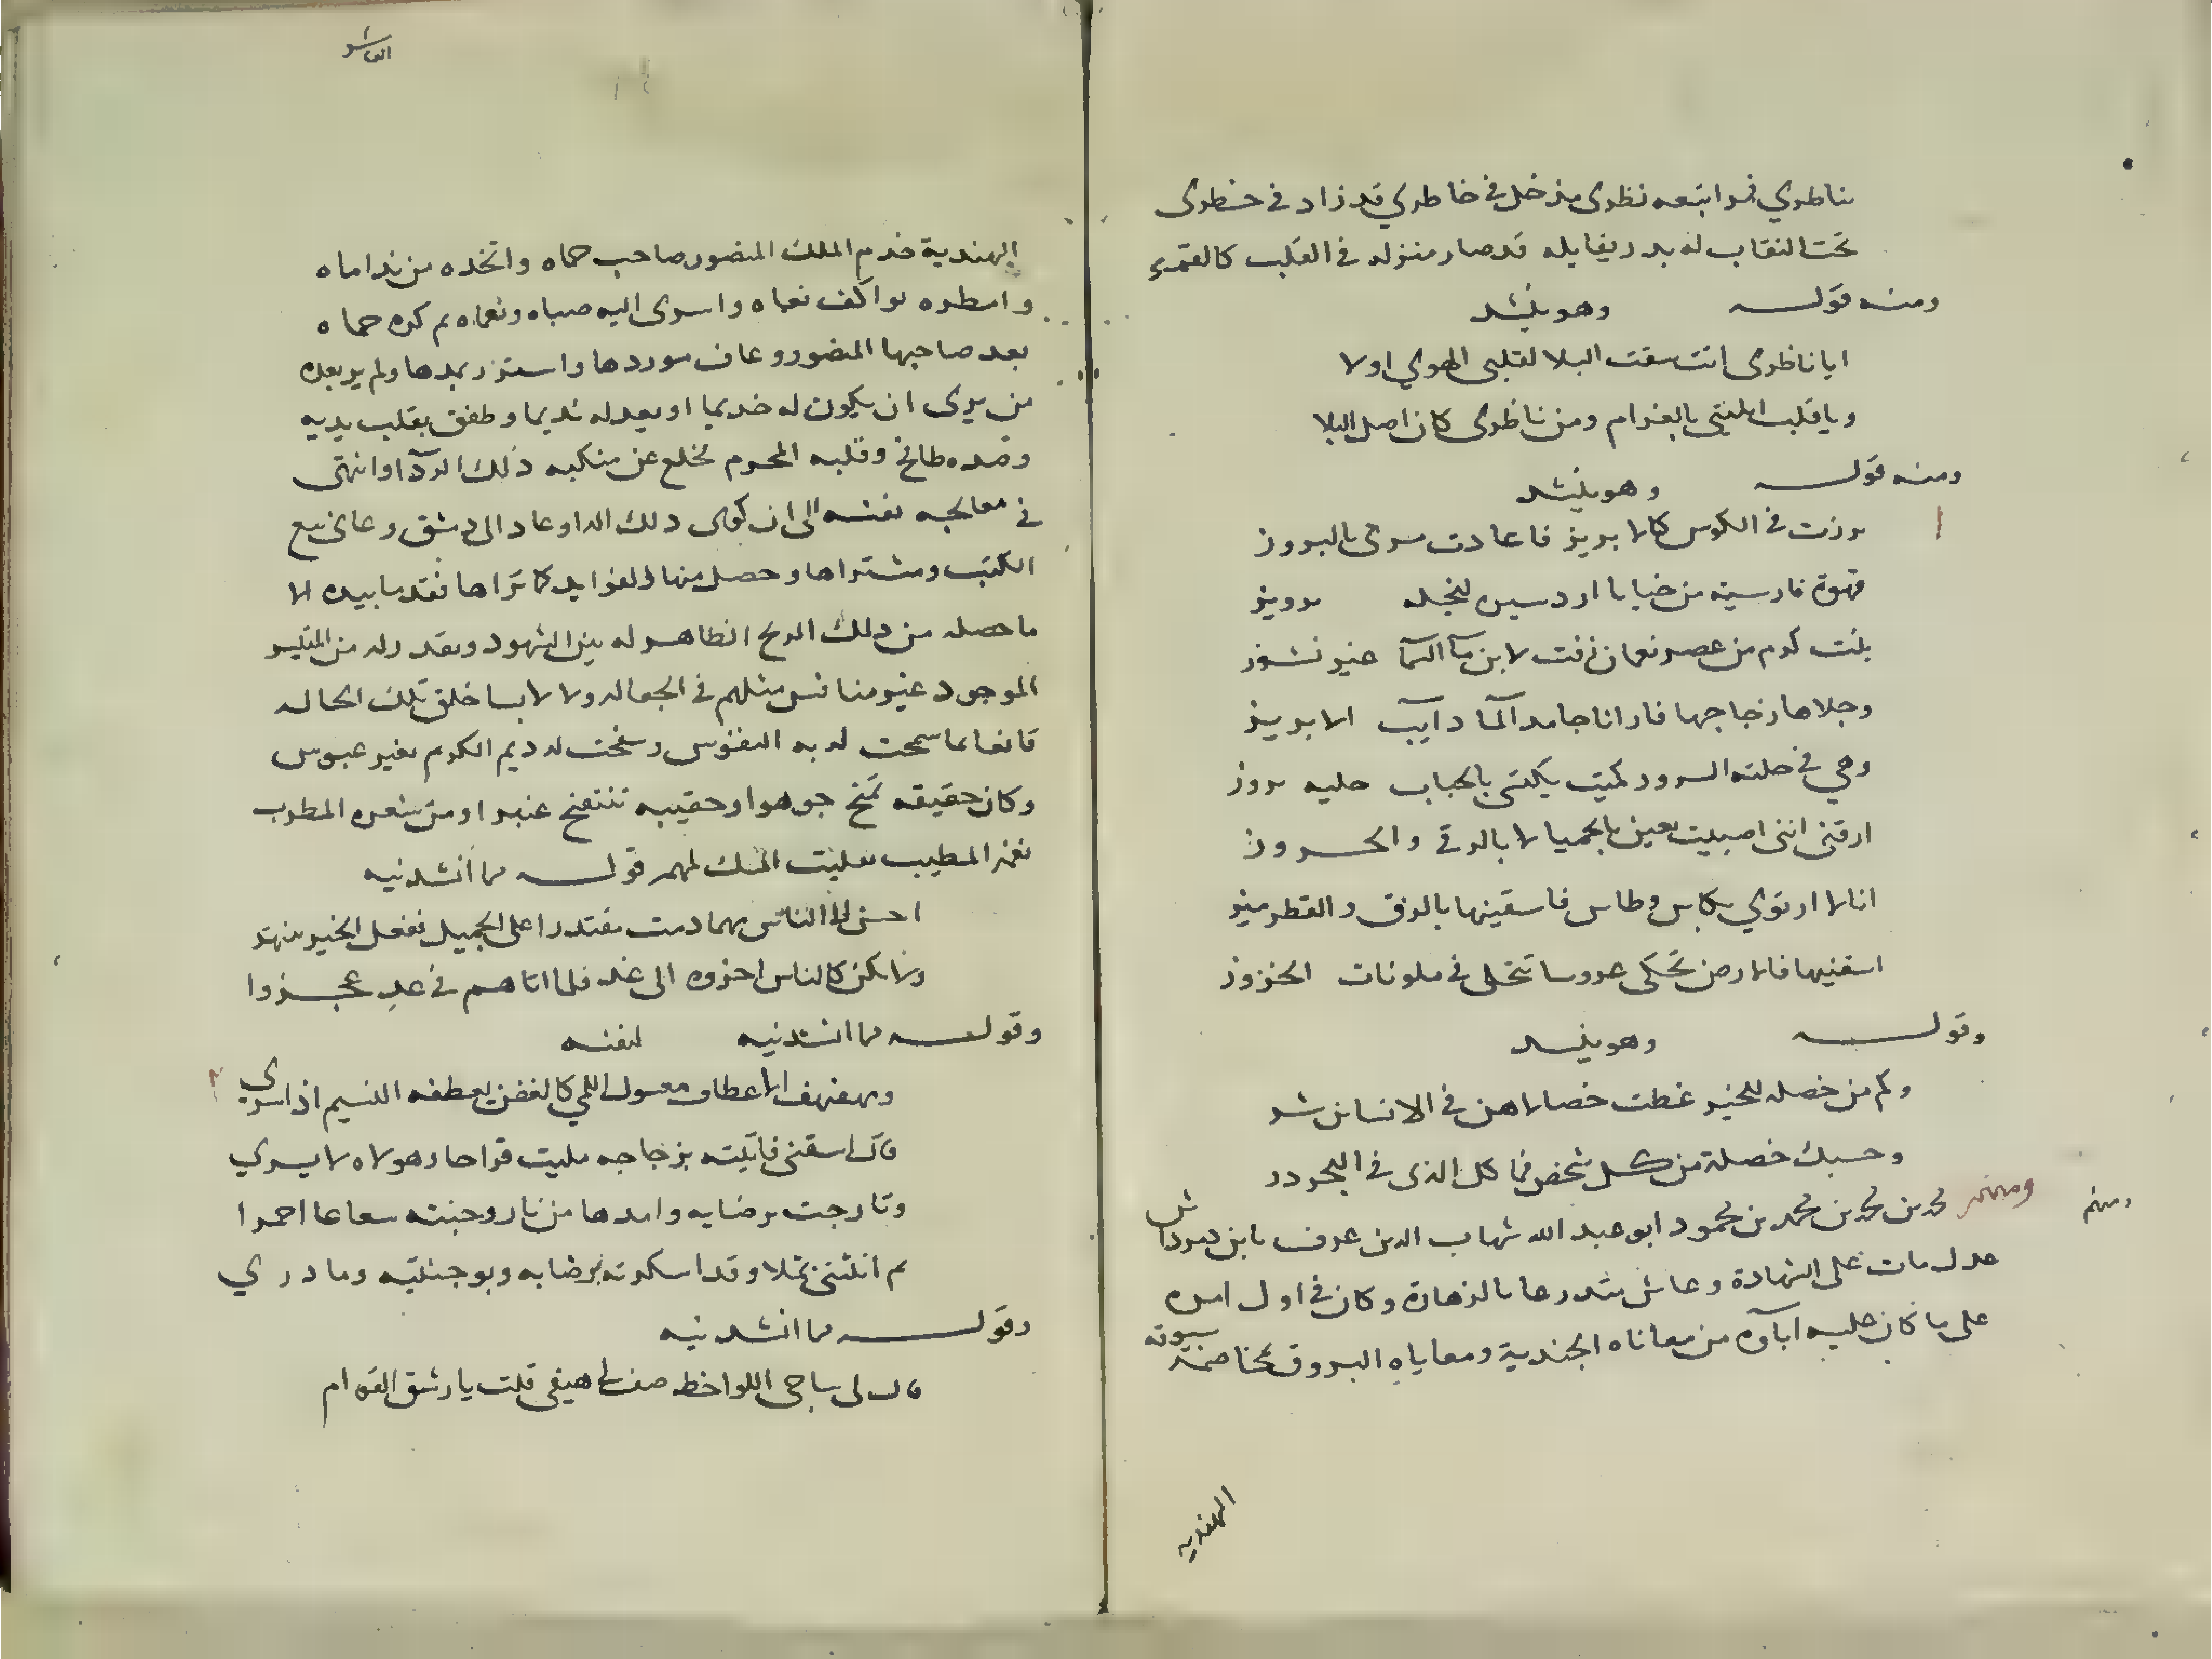 بناظري قمرا تبعه نظري مذ حل في خاطري قد زاد في خطري
تحت النقاب له بدر يقابله قد صار منزله في القلب كالقمر
ومنه قوله وهو ينشد
ايا ناظري انت سقت البلا لقلبي الهوي اولا
ويا قلب المبتلى بالغرام ومن ناظري كان اصل البلا
ومنه قوله وهو ينشد
برزت في الكوس كالابريز فاعادت سرى بالبروز
قهوة فارسية من خبايا اردسير لنجله برويز
بنت كرم من عصر نعمان زفت لابن مآ السمآ غير نشوز
وجلاها زجاجها فارانا جامد المآ دايب الابريز
وهي في حلته السرور كميت يكتسى بالحباب حليه بروز
ارقنى اننى اصبيت بعين بالحميا لا بالرقى والحروز
انا لا ارتوي بكاس وطاس فاسقينها بالزق والقطرميز
اسقنيها فالارض تحكى عروسا تتجلى في ملونات الخزوز
وقوله وهو ينشد
وكم من خصله للخير غطت خصالا هن في الانسان شر
وحسبك خصلة من كل شخص فما كل الذى في البحر در
ومنهم
ومنهم محمد بن محمد بن محمد بن محمود ابو عبد الله شهاب الدين عرف بابن دمرداش
عدل مات على الشهادة وعاش متدرعا بالزهادة وكان في اول امره
على ما كان عليه اباؤه من معاناه الجندية ومعاياه البروق بمخاصمة سيوفه
الهنديه
العاشر
الهندية خدم الملك المنصور صاحب حماه واتخذه من نداماه
وامطره بواكف نعماه واسرى اليه صباه ونعماه ثم كره حماه
بعد صاحبها المنصور وعاف موردها واستزر بمدها ولم ير بعده
من يرى ان يكون له خديما او يعد له نديما وطفق يقلب يديه
وضده طائح وقلبه المحرم مخلع عن منكبه ذلك الردآ وانتهى
في معالجه نفسه الى ان كوى ذلك الدا وعاد الى دمشق وعانى بيع
الكتب ومشتراها وحصل منها الفوايد كما تراها فقد ما بيده الا
ما حصله من ذلك الربح الظاهر له بين الشهود وبقدر له من المتيسر
الموجود غير منافس مثلهم في الجعاله ولا لابسا خلق تلك الحاله
قانعا بما سمحت له به النفوس وسخت له ديم الكرم بغير عبوس
وكان حقيقه تمنح جوهرا وحقيبه تنتفح عنبرا ومن شعره المطرب
نغمه المطيب بعليت المسك لهمه قوله مما انشدنيه
احسن الى الناس مهما دمت مقتدرا على الجميل ففعل الخير ينتهز
ولا تكن كالناس اخروه الى غد فلما اتاهم في غد عجزوا
وقوله مما انشدنيه لنفسه
ومهفهف الاعطاف معسول اللمي كالغصن يعطفه النسيم اذا سرى
قال اسقنى فاتيته بزجاجه مليت قراحا وهو لاه لا يرى
وتارجت برضابه وامدها من نار وجنته شعاعا احمرا
ثم انثنى ثملا وقد اسكرته برضابه وبوجنتيه وما درى
وقوله مما انشدنيه
قال لى ساجى اللواحظ صف لى هيفى قلت يا رشيق القوام